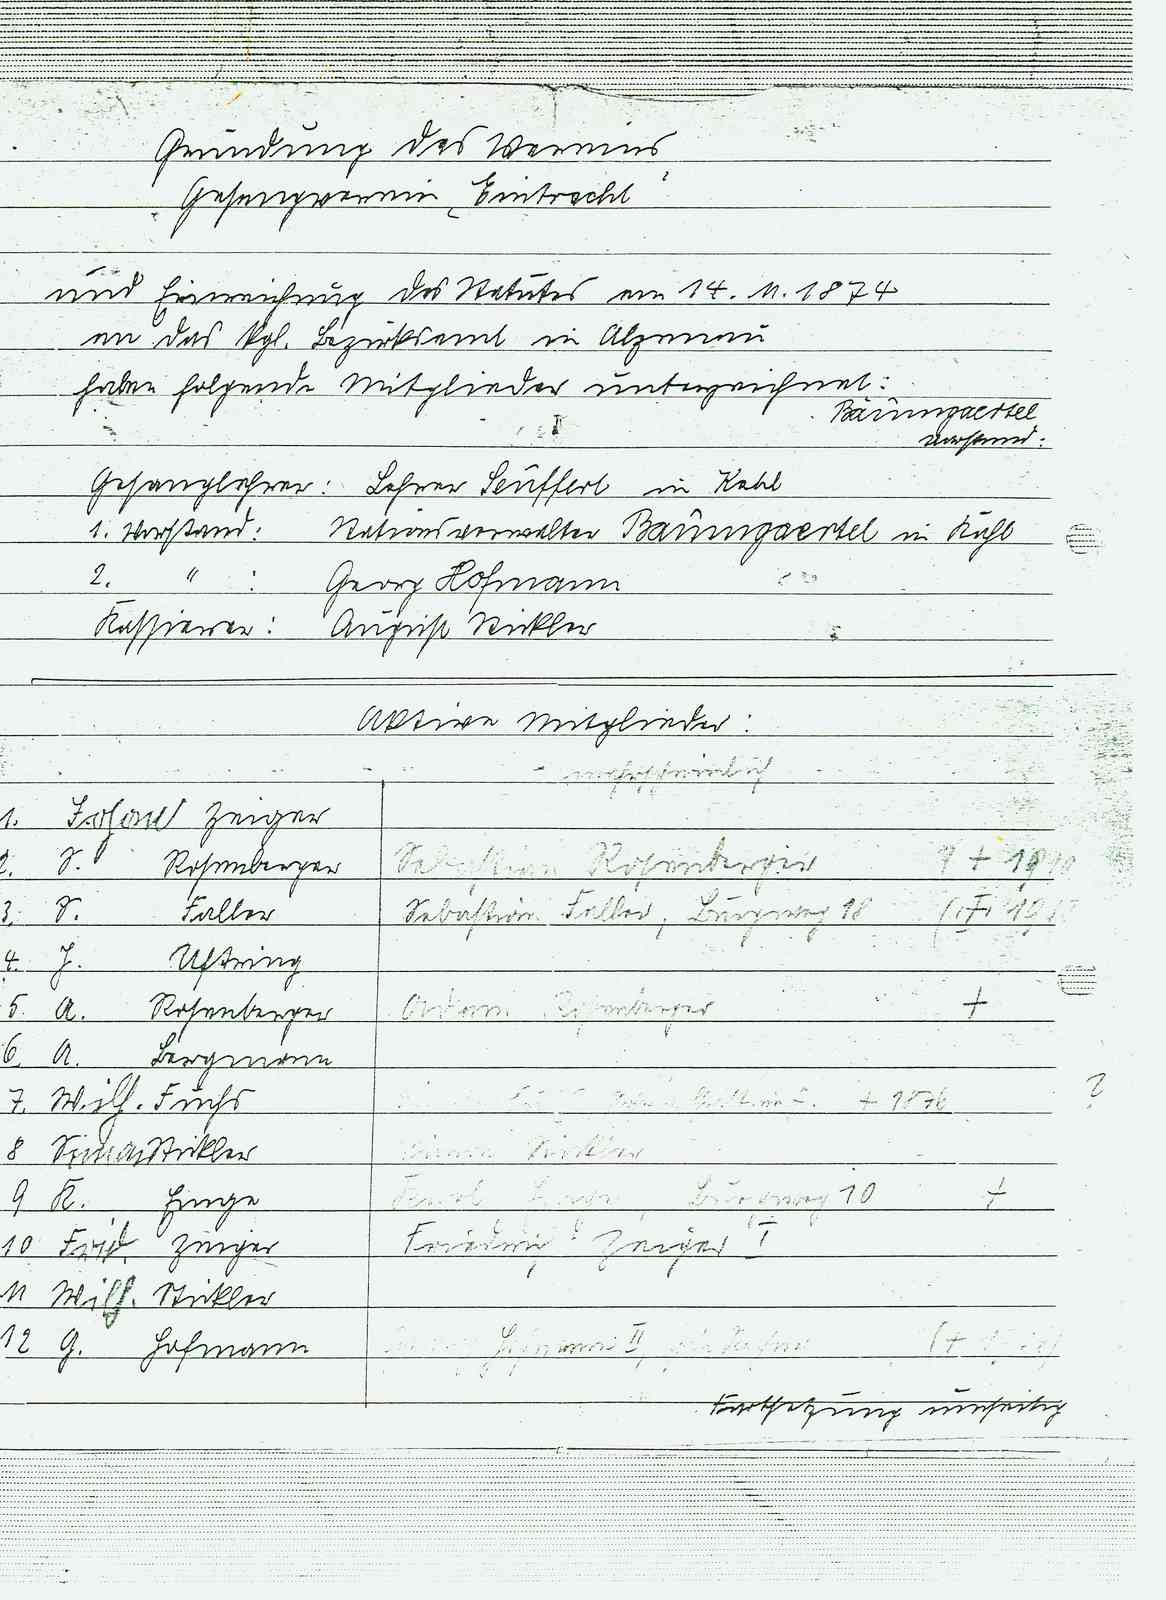 Gründung des Vereins
Gesangverein „Eintracht"
und Einreichung des Statutes am 14. 11. 1874
an das kgl. Bezirksamt in Alzenau
haben folgende Mitglieder unterzeichnet:
Bäumgaertel
Vorstand:
Gesanglehrer: Lehrer Seuffert in Kahl
1. Vorstand: Stationsverwalter Baumgaertel in Kahl
2. " : Georg Hofmann
Kassierer: August Stickler
Aktive Mitglieder:
wahrscheinlich
1. Johann Zeiger
2. S. Rosenberger Sebastian Rosenberger
3. S. Faller Sebastian Faller, Burgweg 18
4. J. Uftring
5. A. Rosenberger Adam Rosenberger +
6. A. Bergmann
7. Wilh. Fuchs + 1876 ?
8 Simon Stickler Simon Stickler
9 K. Burgweg 10 +
10 Frid. Zeiger Friedrich Zeiger I
11 Wilh. Stickler
12 G. Hofmann Hofmann II
Fortsetzung umseitig